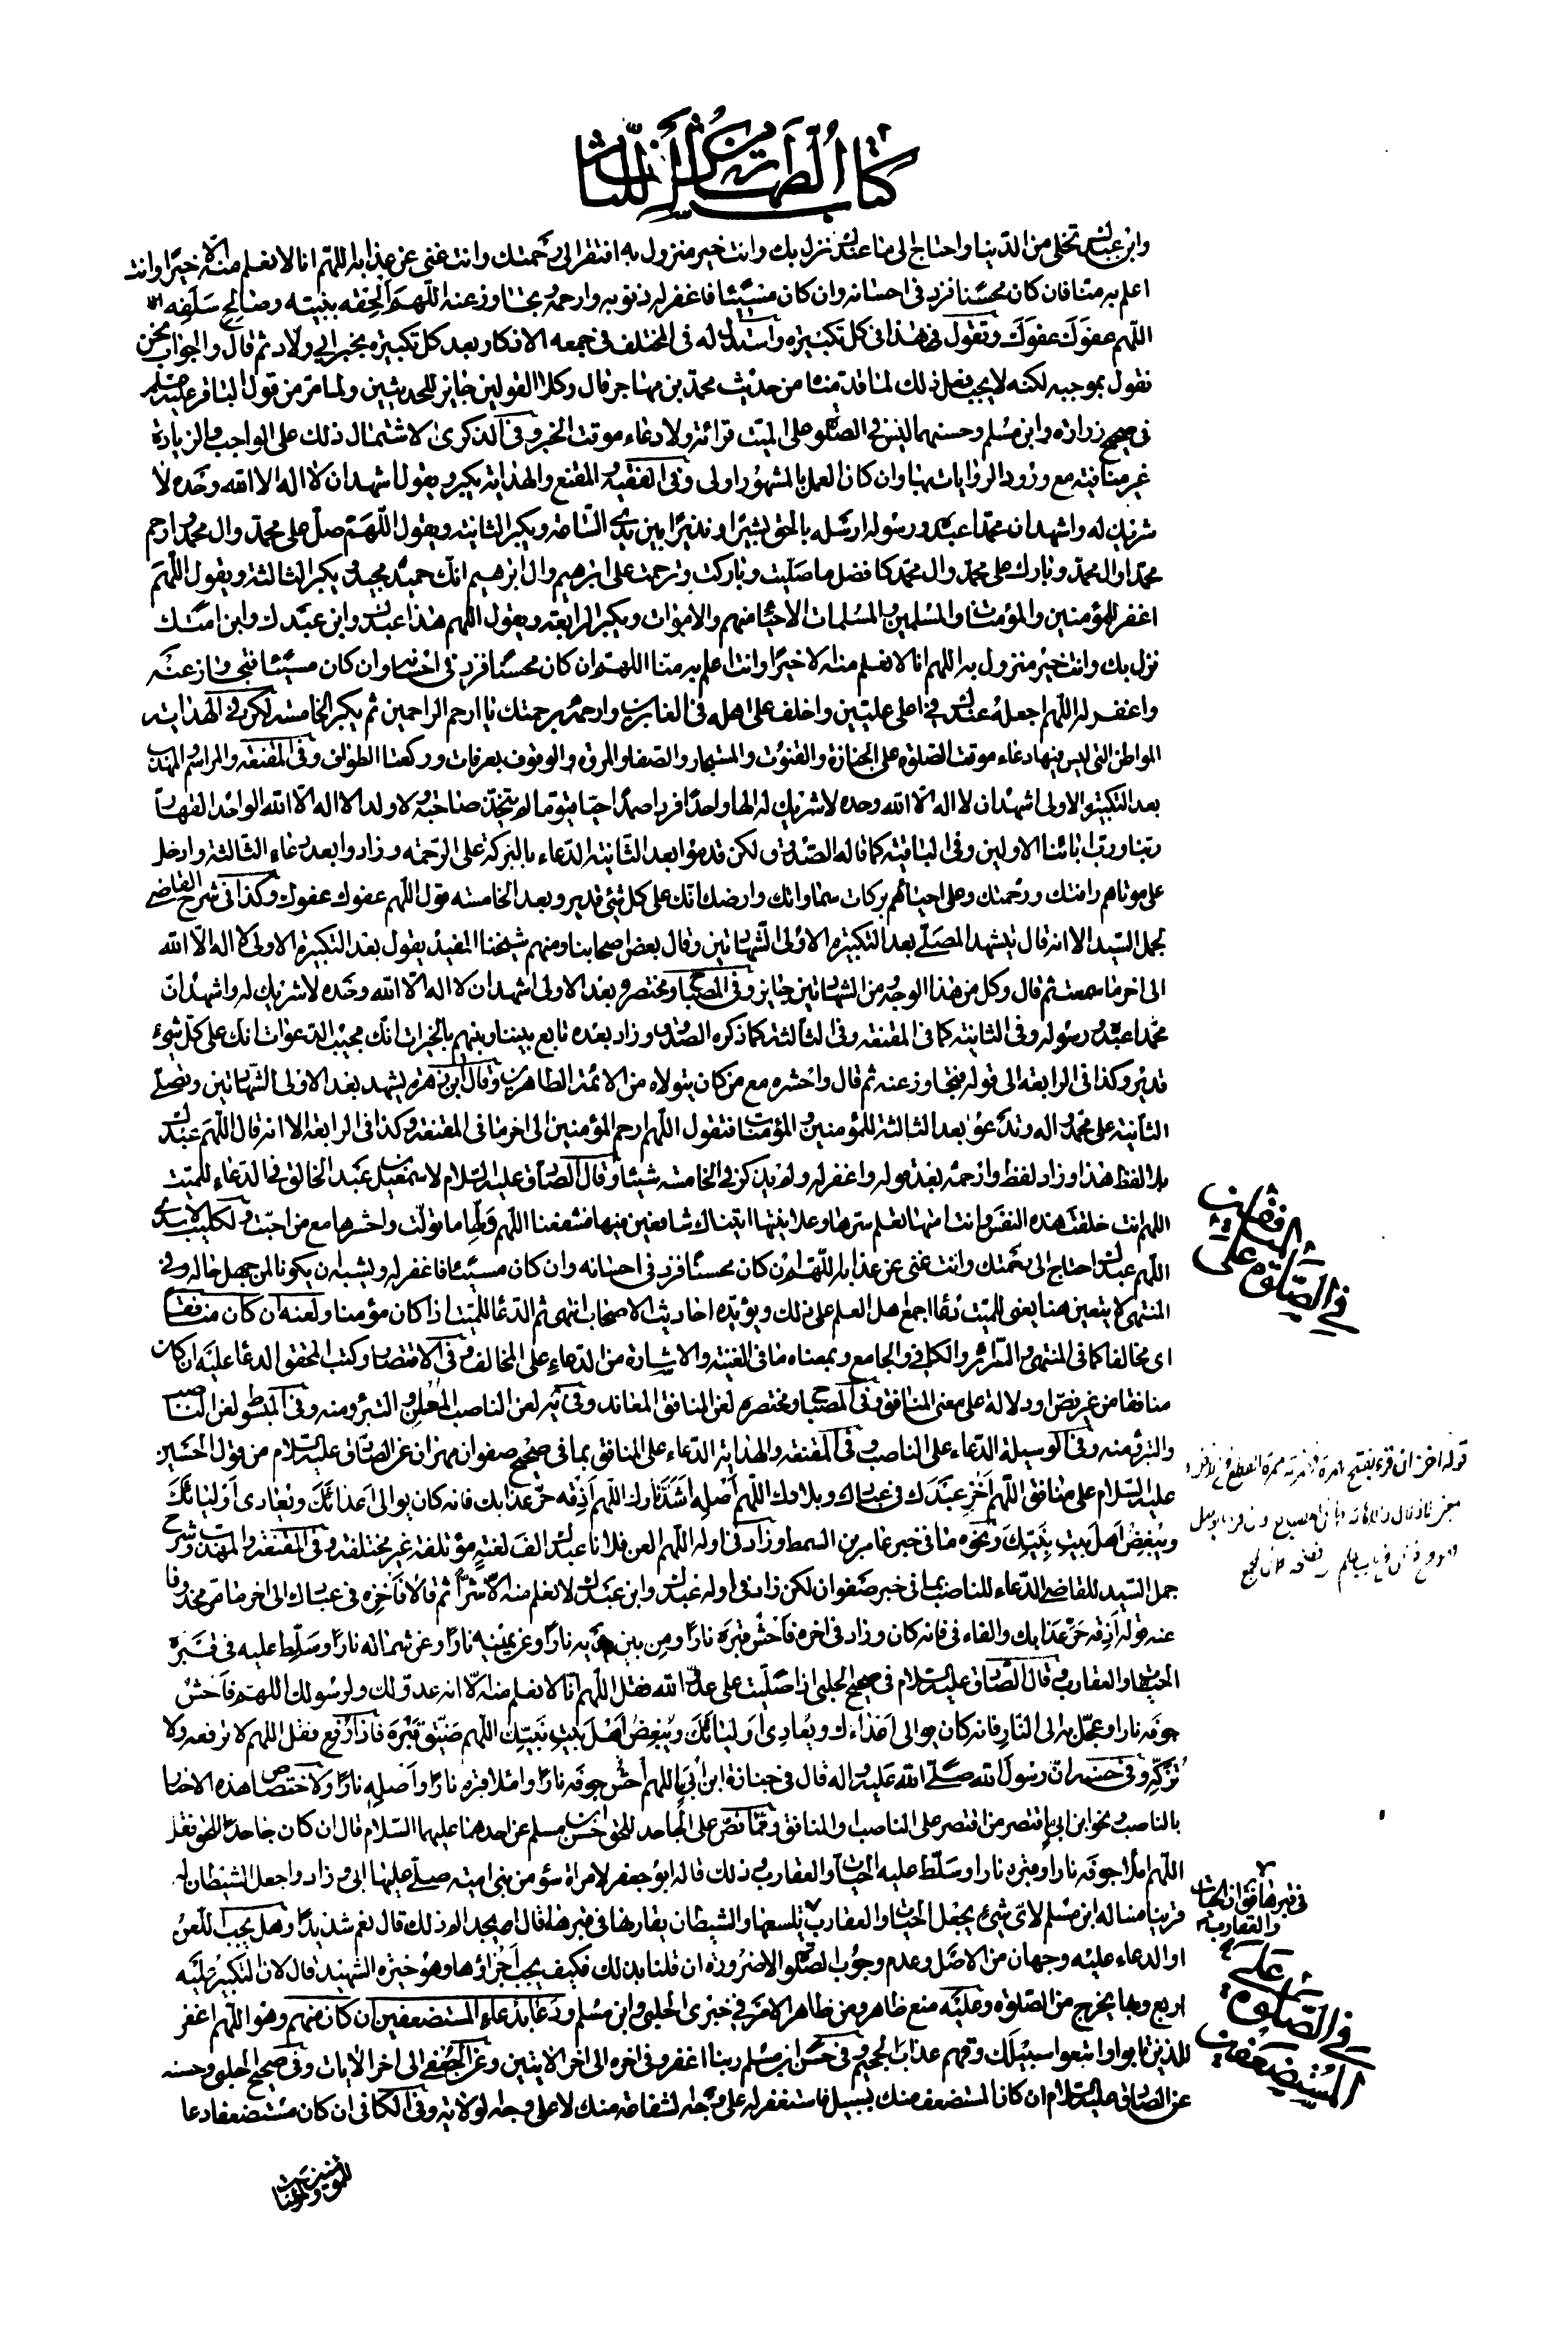 كتاب الطهارة من كشف اللثام
وابن عبدك تخلى من الدنيا واحتاج الى ما عندك نزل بك وانت خير منزول به افتقر الى رحمتك وانت غنى عن عذابه اللهم انا لا نعلم منه الا خيرا وانت
اعلم به منا فان كان محسنا فزد فى احسانه وان كان مسيئا فاغفر له ذنوبه وارحمه وتجاوز عنه اللهم الحقه بنبيه وصالح سلفه
اللهم عفوك عفوك وتقول فى هذا فى كل تكبيره واستدل له فى المختلف فى جمعه الاذكار بعد كل تكبيره بخبر ابى ولاد ثم قال والجواب نحن
نقول بموجبه لكنه لا يجب فعل ذلك لما قدمنا من حديث محمد بن مهاجر قال وكلا القولين جايز للحديثين ولما مر من قول الباقر عليه السلم
فى صحيح زرارة وابن مسلم وحسنهما ليس فى الصلوة على الميت قرائة ولا دعاء موقت الخبر وفى الذكرى لاشتمال ذلك على الواجب والزيادة
غير منافية مع ورود الروايات بها وان كان العمل بالمشهور اولى وفى الفقيه والمقنع والهداية يكبر ويقول اشهد ان لا اله الا الله وحده لا
شريك له واشهد ان محمدا عبده ورسوله ارسله بالحق بشيرا ونذيرا بين يدى الساعة ويكبر الثانية ويقول اللهم صل على محمد وال محمد وارحم
محمدا وال محمد وبارك على محمد وال محمد كافضل ما صليت وباركت وترحمت على ابرهيم وال ابرهيم انك حميد مجيد ويكبر الثالثة ويقول اللهم
اغفر للمؤمنين والمؤمنات والمسلمين والمسلمات الاحياء منهم والاموات ويكبر الرابعة ويقول اللهم هذا عبدك وابن عبدك وابن امتك
نزل بك وانت خير منزول به اللهم انا لا نعلم منه الا خيرا وانت اعلم به منا اللهم ان كان محسنا فزد فى احسانه وان كان مسيئا فتجاوز عنه
واغفر له اللهم اجعله عندك فى اعلى عليين واخلف على اهله فى الغابرين وارحمه برحمتك يا ارحم الراحمين ثم يكبر الخامسة لكن فى الهداية
المواطن التى ليس فيها دعاء موقت الصلوة على الجنازة والقنوت والمستجار والصفا والمروة والوقوف بعرفات وركعتا الطواف وفى المقنعة والمراسم والمهذب
بعد التكبيرة الاولى اشهد ان لا اله الا الله وحده لا شريك له الها واحدا فردا صمدا حيا قيوما لم يتخذ صاحبة ولا ولدا لا اله الا الله الواحد القهار
ربنا ورب ابائنا الاولين وفى الباقية كما قاله الصدوق ولكن قدموا بعد الثانية الدعاء بالبركة على الرحمة وزادوا بعد دعاء الثالثة وادخل
على موتاهم رافتك ورحمتك وعلى احيائهم بركات سماواتك وارضك انك على كل شئ قدير وبعد الخامسة قول اللهم عفوك عفوك وكذا فى شرح القاضى
لجمل السيد الا انه قال تشهد المصلى بعد التكبيرة الاولى الشهادتين وقال بعض اصحابنا ومنهم شيخنا المفيد يقول بعد التكبيرة الاولى لا اله الا الله
الى اخر ما سمعت ثم قال وكل من هذا الوجه من الشهادتين جايز وفى المصباح ومختصره بعد الاولى اشهد ان لا اله الا الله وحده لا شريك له واشهد ان
محمدا عبده ورسوله وفى الثانية كما فى المقنعة وفى الثالثة كما ذكره الصدوق وزاد بعده تابع بيننا وبينهم بالخيرات انك مجيب الدعوات انك على كل شئ
قدير وكذا فى الرابعة الى قوله فتجاوز عنه ثم قال واحشره مع من كان يتولاه من الائمة الطاهرين وقال ابن زهرة يشهد بعد الاولى الشهادتين ويصلى
الثانية على محمد واله ويدعو بعد الثالثة للمؤمنين والمؤمنات فتقول اللهم ارحم المؤمنين الى اخر ما فى المقنعة وكذا فى الرابعة الا انه قال اللهم عبدك
بلا لفظ هذا وزاد لفظ وارحمه بعد قوله واغفر له ولم يذكر فى الخامسة شيئا وقال الصادق عليه السلام لاسمعيل بن عبد الخالق فى الدعاء للميت
اللهم انت خلقت هذه النفس وانت امتها تعلم سرها وعلانيتها اتيناك شافعين فيها فشفعنا اللهم ولها ما تولت واحشرها مع من احبت ولكليب الاسدى
اللهم عبدك احتاج الى رحمتك وانت غنى عن عذابه اللهم ان كان محسنا فزد فى احسانه وان كان مسيئا فاغفر له ويشبه ان يكونا لمن جهل حاله وفى
المنتهى لا يتعين هنا يعنى للميت دعاء اجمع اهل العلم على ذلك ويؤيده احاديث الاصحاب انتهى ثم الدعا للميت اذا كان مؤمنا ولعنه ان كان منافقا
اى مخالفا كما فى المنتهى والسرائر والكافى والجامع وبمعناه ما فى الغنية والاشارة من الدعاء على المخالف وفى الاقتصاد وكتب المحقق الدعا عليه ان كان
منافقا من غير نص او دلالة على معنى المنافق وفى المصباح ومختصره لعن المنافق المعاند وفى يه لعن الناصب المعلن والتبرؤ منه وفى المبسوط لعن الناصب
والتبرؤ منه وفى الوسيلة الدعاء على الناصب وفى المقنعة والهداية الدعاء على المنافق بما فى صحيح صفوان بن مهران عن الصادق عليه السلام من قول الحسين
عليه السلام على منافق اللهم اخز عبدك فى عبادك وبلادك اللهم اصله اشد نارك اللهم اذقه حر عذابك فانه كان يوالى اعدائك ويعادى اوليائك
ويبغض اهل بيت نبيك ونحوه ما فى خبر عامر بن السمط وزاد فى اوله اللهم العن فلانا عبدك الف لعنة مؤتلفة غير مختلفة وفى المقنعة والمهذب وشرح
جمل السيد للقاضى الدعاء للناصب بما فى خبر صفوان لكن زاد فى اوله عبدك وابن عبدك لا نعلم منه الا شرا ثم قالا فاخزه فى عبادك الى اخر ما مر محذوفا
عنه قوله اذقه حر عذابك والفاء فى فانه كان وزاد فى اخره فاحش قبره نارا ومن بين يديه نارا وعن يمينه نارا وعن شماله نارا وسلط عليه فى قبره
الحيات والعقارب وقال الصادق عليه السلام فى صحيح الحلبى اذا صليت على عدو الله فقل اللهم انا لا نعلم منه الا انه عدو لك ولرسولك اللهم فاحش
جوفه نارا وعجل به الى النار فانه كان يوالى اعداءك ويعادى اوليائك ويبغض اهل بيت نبيك اللهم ضيق قبره فاذا رفع فقل اللهم لا ترفعه ولا
تزكه وفى حسنه ان رسول الله صلى الله عليه واله قال فى جنازة ابن ابى اللهم احش جوفه نارا واملا قبره نارا واصله نارا ولاختصاص هذه الاخبار
بالناصب ونحو ابن ابى اقتصر من اقتصر على الناصب والمنافق ومما نص على الجاحد للحق حسن ابن مسلم عن احدهما عليهما السلام قال ان كان جاحدا للحق فقل
اللهم املا جوفه نارا وقبره نارا وسلط عليه الحيات والعقارب وذلك قاله ابو جعفر لامراة سوء من بنى امية صلى عليها ابى وزاد واجعل الشيطان له
قرينا فساله ابن مسلم لاى شئ يجعل الحيات والعقارب فى قبرها فقال ان الحيات والعقارب يلسعها والشيطان يقارنها فى قبرها قال ايجد الم ذلك قال نعم شديدا وهل يجب اللعن
او الدعاء عليه وجهان من الاصل وعدم وجوب الصلوة الا ضرورة ان قلنا بذلك فكيف يجب اجزاؤها وهو خيرة الشهيد قال لان التكبير عليه
اربع وبها يخرج من الصلوة وعليه منع ظاهر ومن ظاهر الامر فى خبرى الحلبى وابن مسلم ودعا بدعاء المستضعفين ان كان منهم وهو اللهم اغفر
للذين تابوا واتبعوا سبيلك وقهم عذاب الجحيم وفى حسن ابن مسلم ربنا اغفر وفى اخره الى اخر الايتين وعن الجعفى الى اخر الايات وفى صحيح الحلبى وحسنه
عن الصادق عليه السلام ان كان المستضعف منك بسبيل فاستغفر له على وجه الشفاعة منك لا على وجه الولاية وفى الكافى ان كان مستضعفا دعا
للمؤمنين والمؤمنات
فى الصلوة على المنافقين
فى الصلوة على المستضعفين